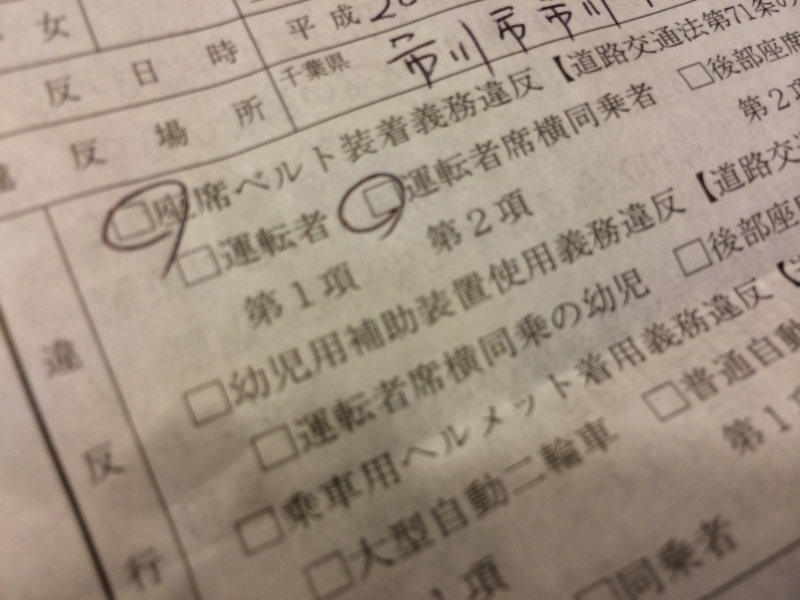 女
平成20
反日時
千葉県
市川市市川
違反場所
座席ベルト装着義務違反【道路交通法第71条の
運転者 運転者席横同乗者 後部座席
第1項 第2項 第2
幼児用補助装置使用義務違反【道路交
運転者席横同乗の幼児 後部座
乗車用ヘルメット着用義務違反【
大型自動二輪車 普通自動
1項 第1
同乗者
違反行